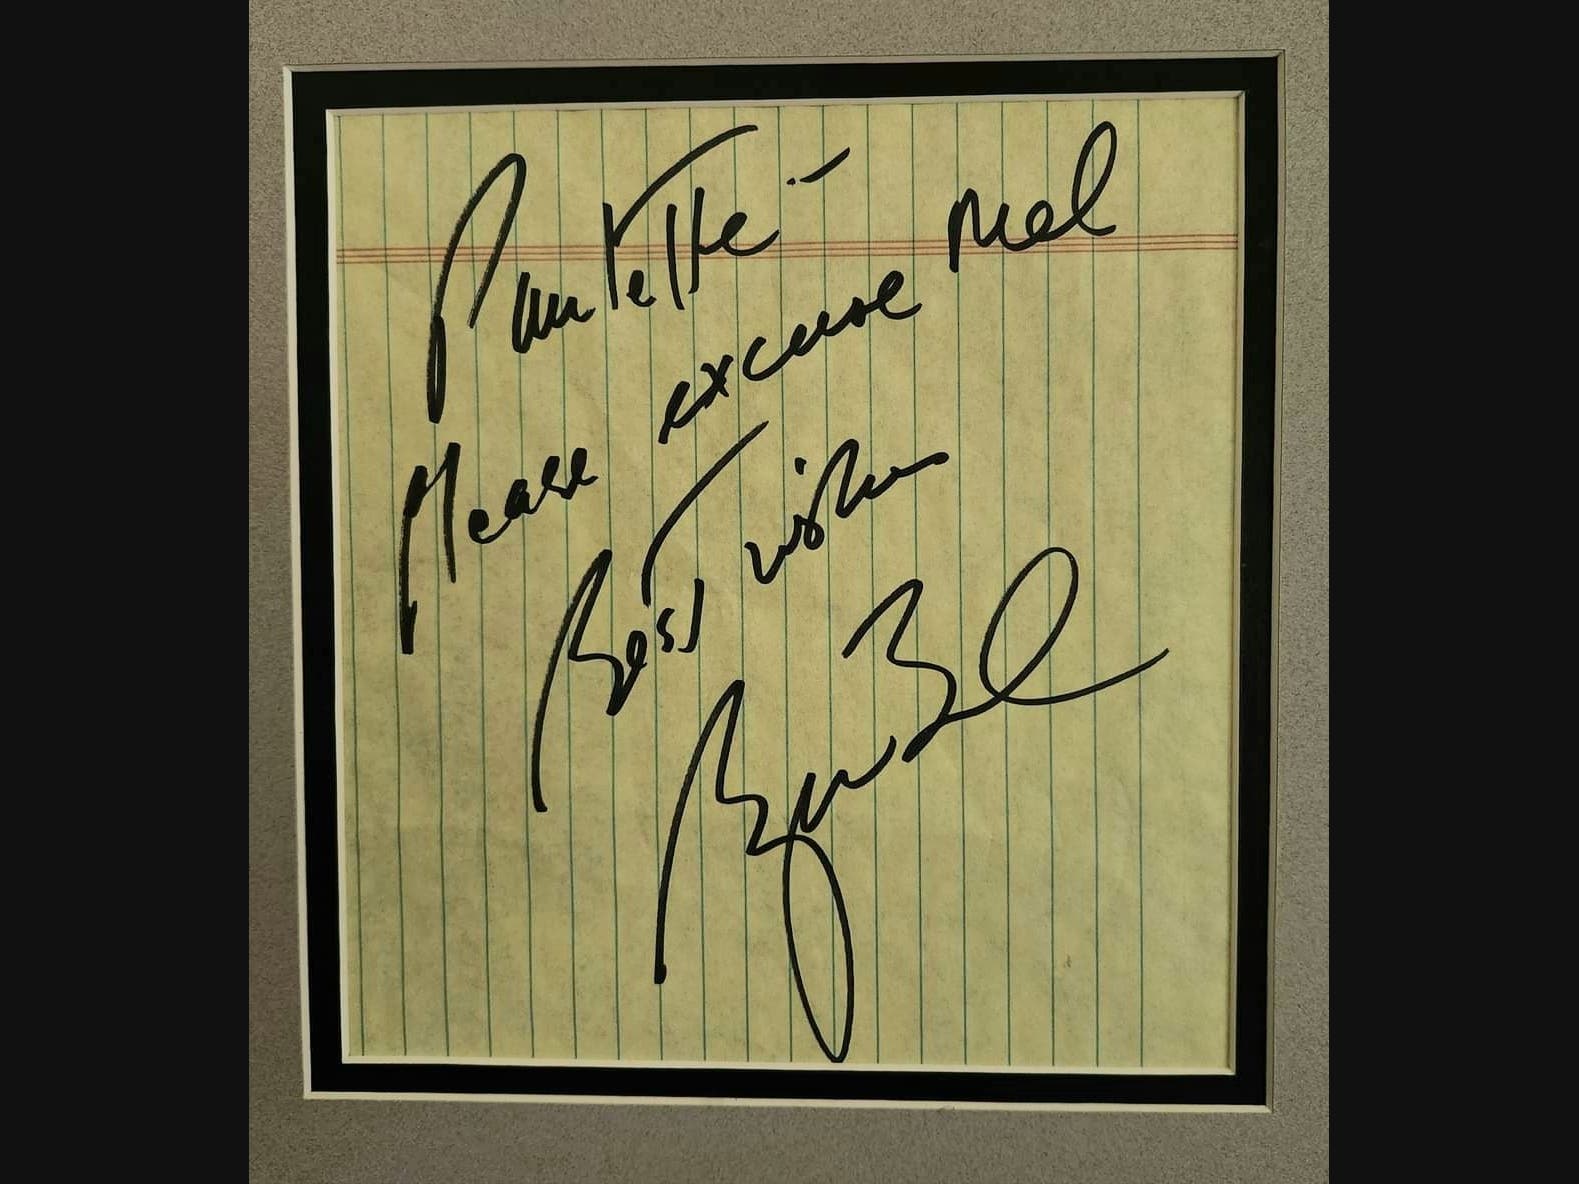 Paulette -
Please excuse Mel
Best wishes